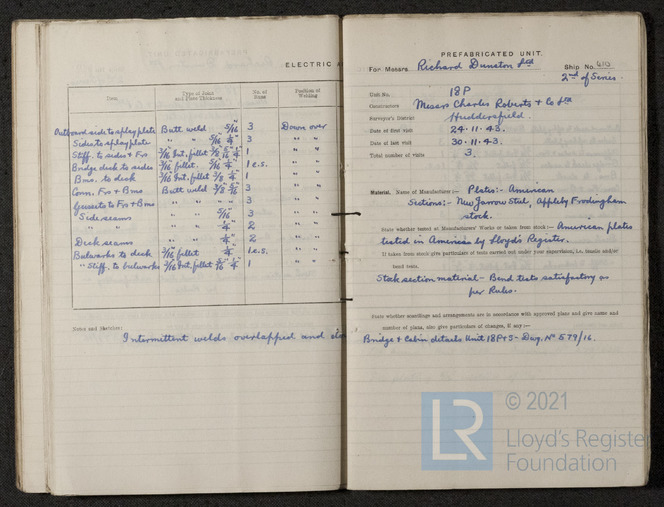 ELECTRIC
Item
Type of Joint and Plate Thickness
No. of Runs
Position of Welding
Outboard side to splay plate Butt weld 5/16" 3 Down over
Side to splay plate " " 5/16 1/4" 3 " "
Stiff. to sides & Frs 3/16 Int. fillet 1 " "
Bridge deck to sides 3/16 fillet. 5/16 1/4" 1 e.s. " "
Bms. to deck 3/16 Int. fillet 3/8 1/4" 1 " "
Conn. Frs & Bms Butt weld 3/8 5/16" 3 " "
Gussets to Frs & Bms " " 3 " "
Side seams " " 5/16" 3 " "
" " " " 1/4" 2 " "
Deck seams " " 1/4" 2 " "
Bulworks to deck 3/16 fillet 1/4" 1 e.s. " "
" Stiff. to bulworks 3/16 Int. fillet 3/16 1/4" 1 " "
Notes and Sketches:
Intermittent welds overlapped and
PREFABRICATED UNIT.
For Messrs. Richard Dunston Ltd Ship No. 410
2nd of Series.
Unit No. 18P
Constructors Messrs Charles Roberts & Co Ltd
Surveyor's District Huddersfield.
Date of first visit 24.11.43.
Date of last visit 30.11.43.
Total number of visits 3.
Material. Name of Manufacturer :— Plates:- American
Sections:- New Jarrow Steel, Appleby Frodingham
stock.
State whether tested at Manufacturers' Works or taken from stock :— American plates
tested in America by Lloyd's Register.
If taken from stock give particulars of tests carried out under your supervision, i.e. tensile and/or
bend tests.
Stock section material - Bend tests satisfactory as
per Rules.
State whether scantlings and arrangements are in accordance with approved plans and give name and
number of plans, also give particulars of changes, if any :—
Bridge & Cabin details Unit 18P+S - Dwg. No 579/16.
LR
© 2021
Lloyd's Register
Foundation